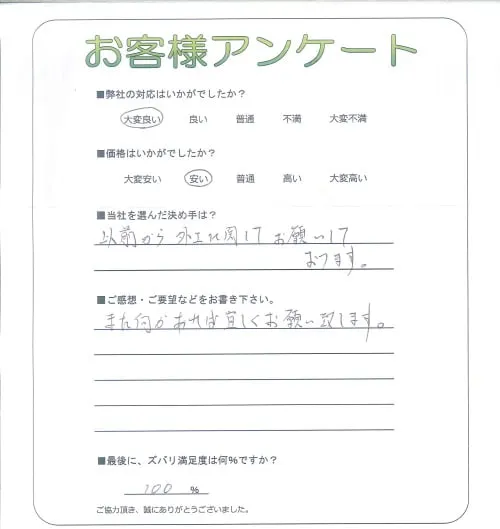 お客様アンケート
■弊社の対応はいかがでしたか？
大変良い 良い 普通 不満 大変不満
■価格はいかがでしたか？
大変安い 安い 普通 高い 大変高い
■当社を選んだ決め手は？
以前から 外工 関して お願いして
おります。
■ご感想・ご要望などをお書き下さい。
また何かあれば宜しくお願い致します。
■最後に、ズバリ満足度は何％ですか？
100 ％
ご協力頂き、誠にありがとうございました。